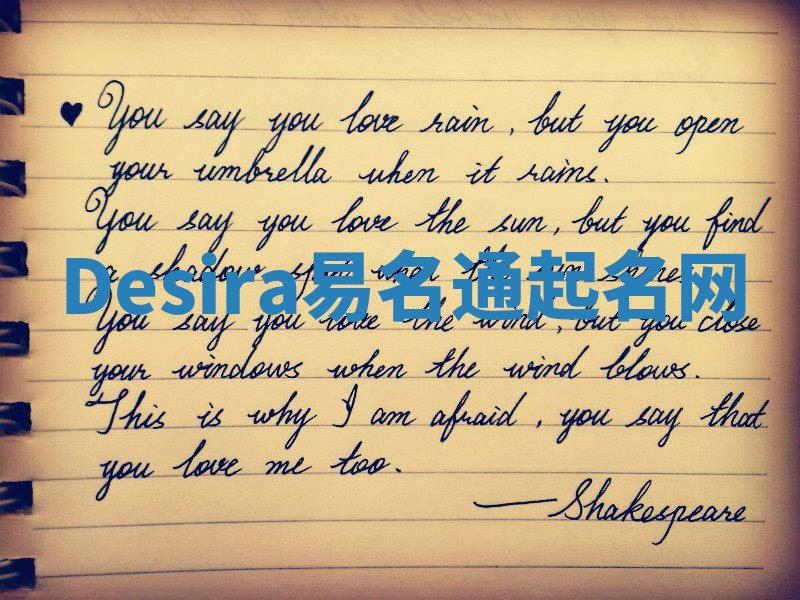 ♥ You say you love rain, but you open
your umbrella when it rains.
You say you love the sun, but you find
a shadow spot when the sun shines.
Desira易名通起名网
You say you love the wind, but you close
your windows when the wind blows.
This is why I am afraid, you say that
you love me too.
—Shakespeare